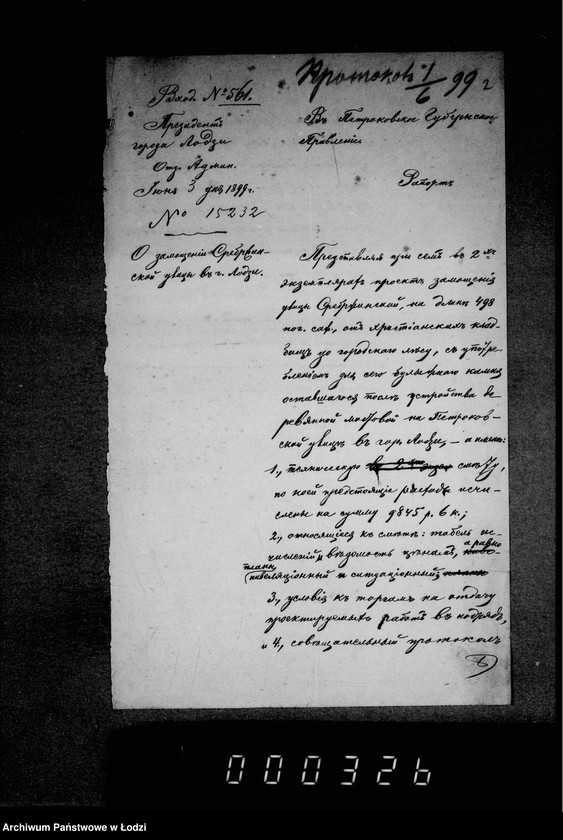 Протоколъ 1/6 99 г
Вход. № 561.
Президентъ
города Лодзи
Отд. Админ.
Іюня 3 дня 1899 г.
№ 15232
Въ Петроковское Губернское
Правленіе
Рапортъ
О замощеніи Сребржин-
ской улицы въ г. Лодзи.
Представляя при семъ въ 2-хъ
экземплярахъ проектъ замощенія
улицы Сребржинской, на длинѣ 498
пог. саж., отъ христіанскихъ клад-
бищъ до городского лѣсу, съ употре-
бленіемъ для сего булыжного камня
оставшагося послѣ устройства де-
ревянной мостовой на Петроков-
ской улицѣ въ гор. Лодзи, – а именно:
1., техническую смѣту,
по коей предстоящіе расходы исчи-
слены на сумму 9845 р. 6 к.;
2., относящіеся къ смѣтѣ: табель ис-
численій и вѣдомость цѣнамъ, а равно
планы
нивеляціонный и ситуаціонный
3., условія къ торгамъ на отдачу
проектируемыхъ работъ въ подрядъ,
и 4., совѣщательный протоколъ
000326
Archiwum Państwowe w Łodzi